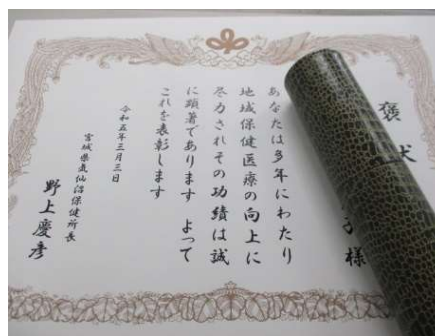 褒状
子様
あなたは多年にわたり
地域保健医療の向上に
尽力されその功績は誠
に顕著であります よって
これを表彰します
令和五年三月三日
宮城県気仙沼保健所長
野上慶彦